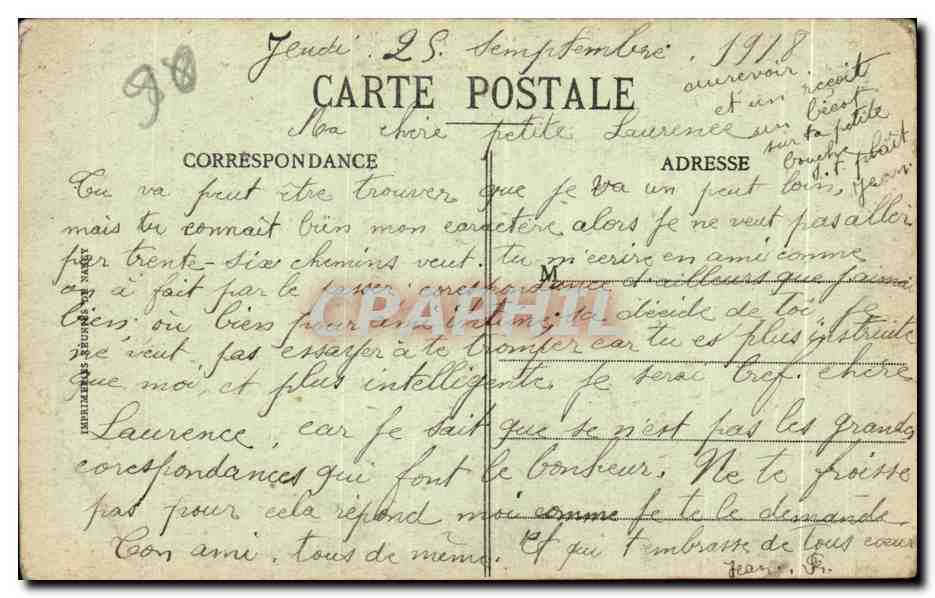 98
Jeudi . 25 . Semptembre . 1918
CARTE POSTALE
Ma chère petite Laurence
aurevoir.
et un reçoit
un bécot
sur ta petite
bouche
s. t. plait
Jean
CORRESPONDANCE
ADRESSE
Tu va peut être trouver que je va un peut loin,
mais tu connait bien mon caractère alors je ne veut pas aller
par trente-six chemins veut. tu m'ecrire en ami comme
on à fait par le passer, correspondance d'ailleurs que j'aimé
bien où bien pour ami intime, sa décide de toi je
ne veut pas essayer à te tromper car tu es plus instruite
que moi, et plus intelligente. Je serai bref. chère
Laurence, car je sait que se n'est pas les grandes
corespondances qui font le bonheur. Ne te froisse
pas pour cela répond moi comme je te le demande
Ton ami, tous de même. Et qui t'embrasse de tous cœur
Jean. Fr.
M
IMPRIMERIES RÉUNIES DE NANCY
CPAPHIL